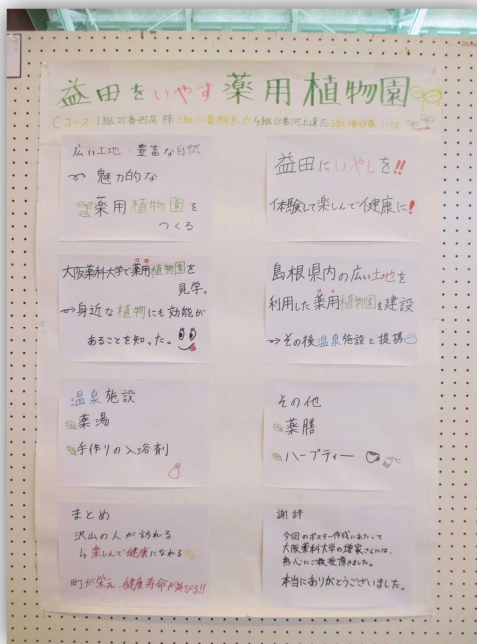 益田をいやす薬用植物園
Cコース 1組25番西尾 3組17番 4組13番河上 3組
広い土地・豊富な自然
→ 魅力的な
薬用植物園を
つくる
益田にいやしを!!
体験して楽しんで健康に!
大阪薬科大学で薬用植物園を
見学。
→身近な植物にも効能が
あることを知った。
島根県内の広い土地を
利用した薬用植物園を建設
→その後温泉施設と提携
温泉施設
薬湯
手作りの入浴剤
その他
薬膳
ハーブティー
まとめ
沢山の人が訪れる
↳楽しんで健康になれる
町が栄え、健康寿命が延びる!!
謝辞
今回のポスター作成にあたって
大阪薬科大学の
熱心にご教授頂きました。
本当にありがとうございました。